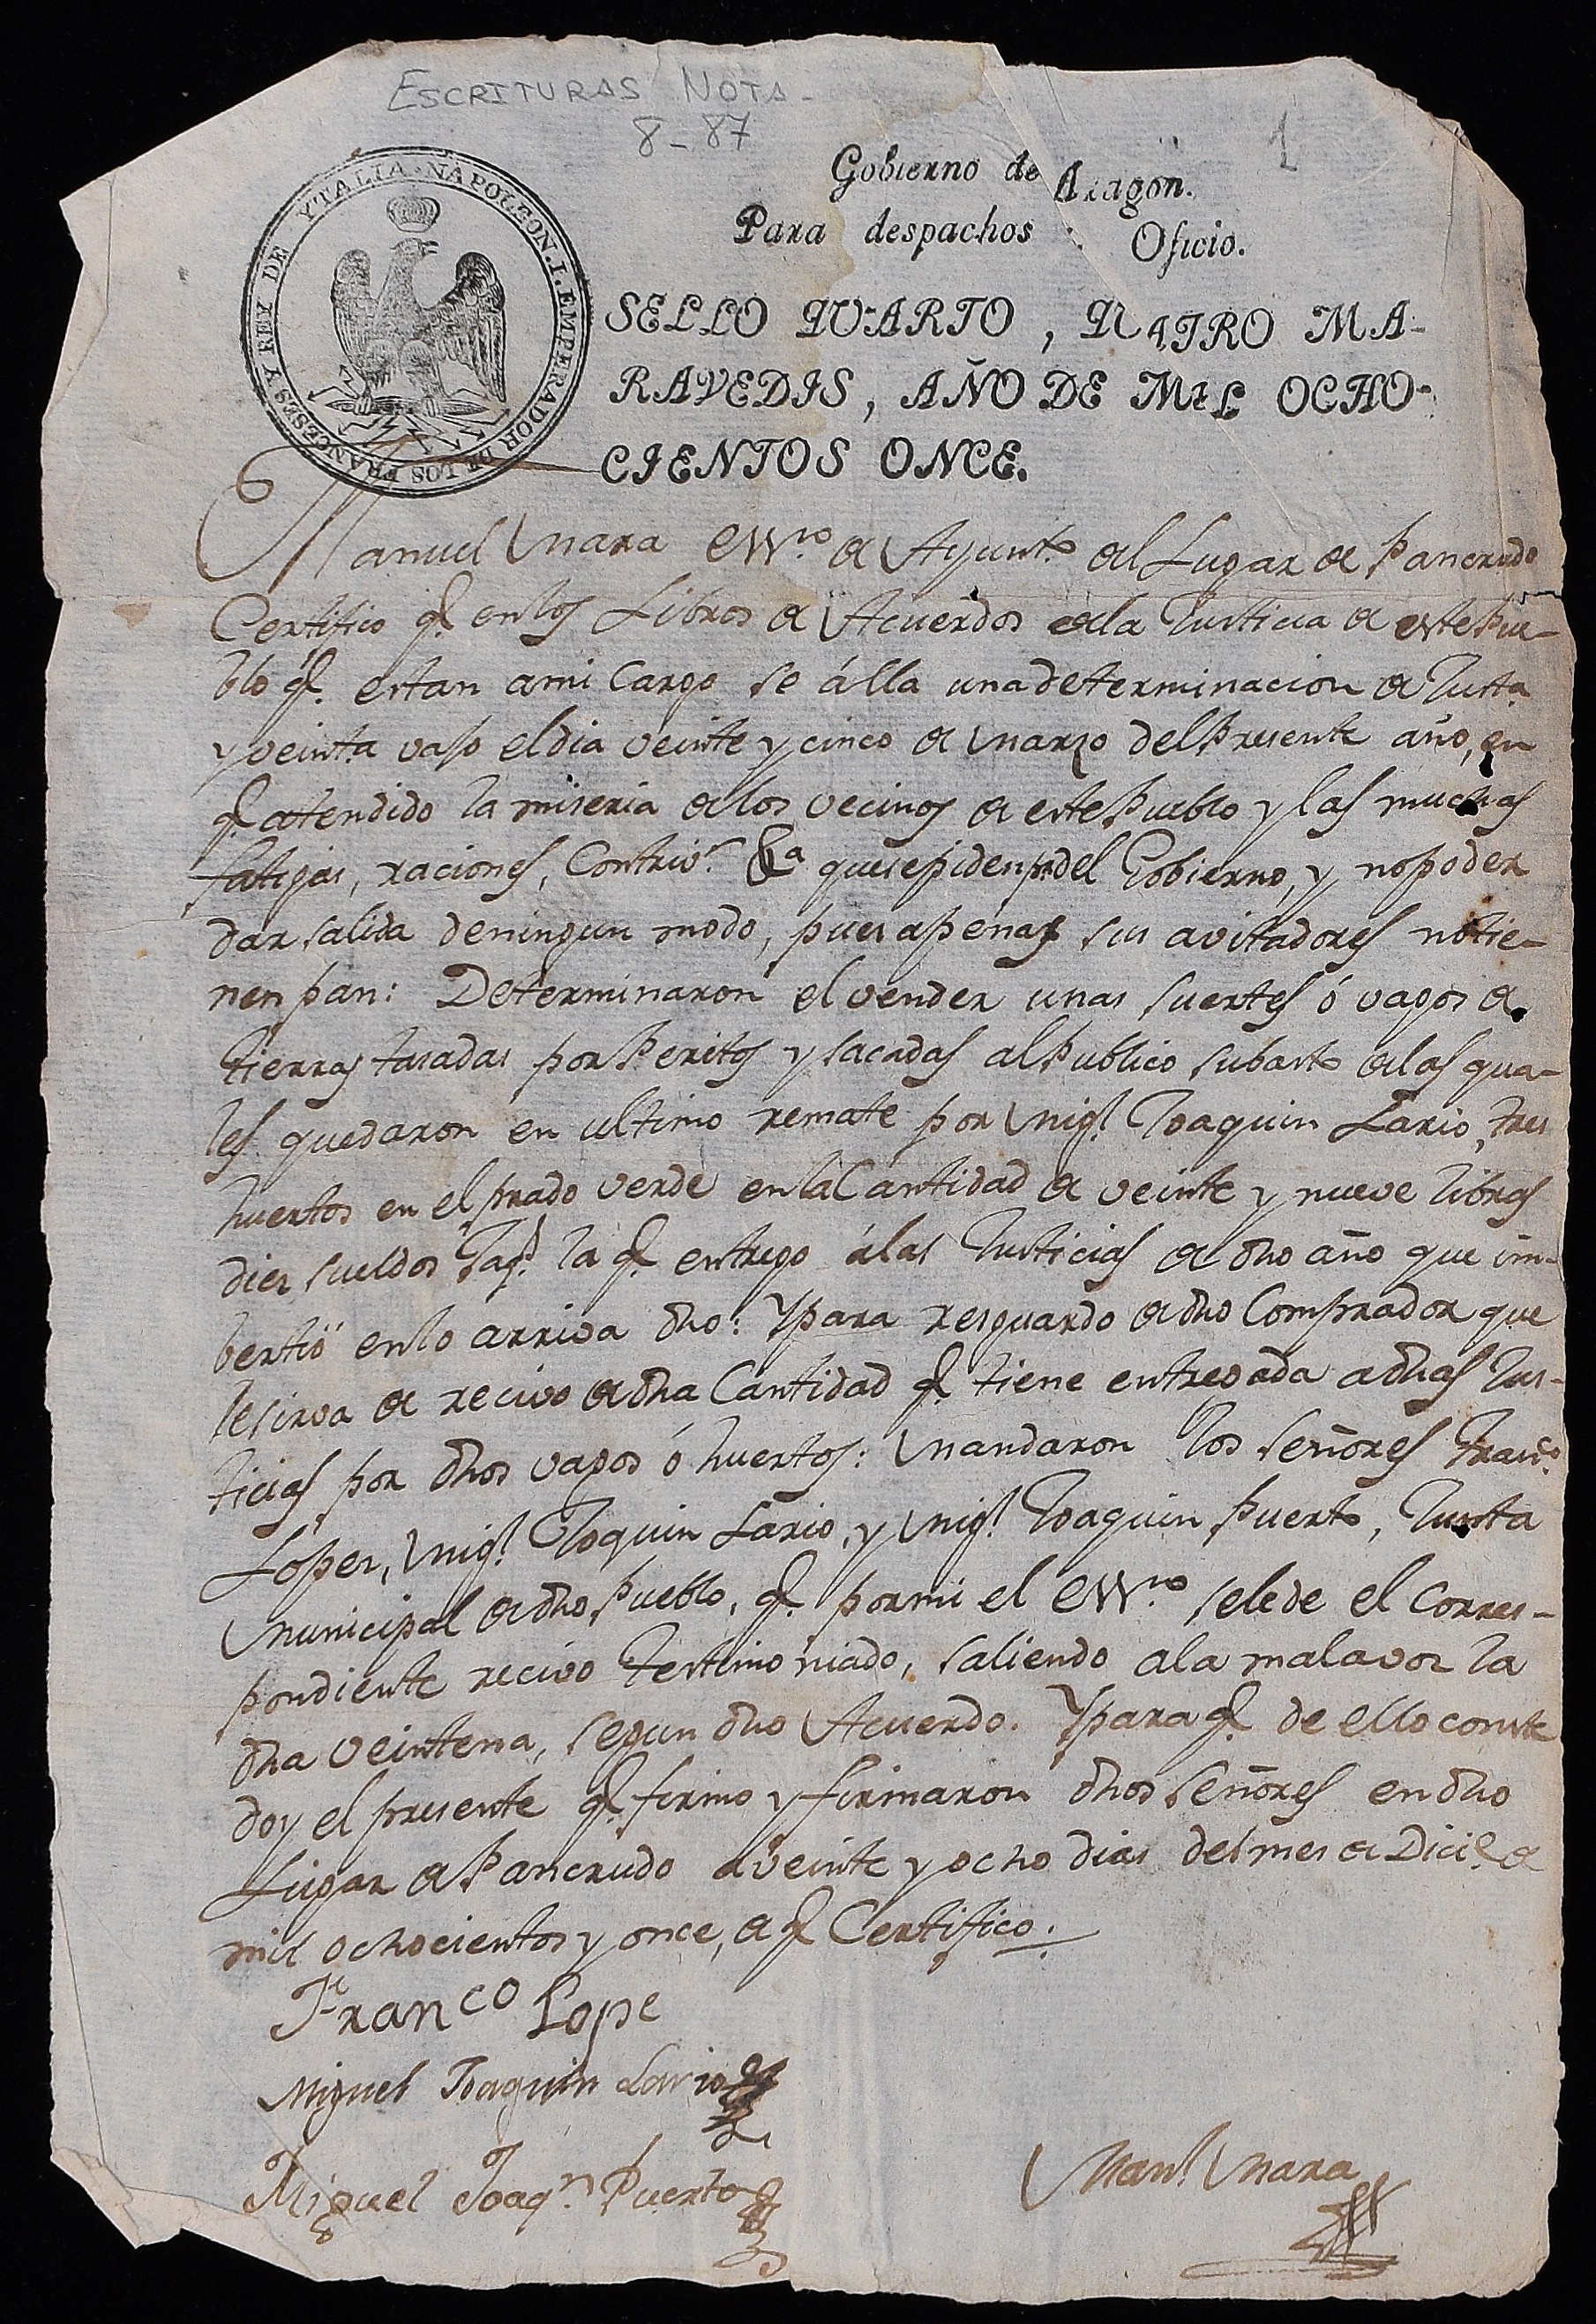 ESCRITURAS NOTA-
8-87
1
NAPOLEON. I. EMPERADOR DE LOS FRANCESES Y REY DE YTALIA.
Gobierno de Aragon.
Para despachos Oficio.
SELLO QUARTO, QUATRO MA-
RAVEDIS, AÑO DE MIL OCHO-
CIENTOS ONCE.
Manuel Mara Ess.no de Ayunt.to del Lugar de Pancrudo
Certifico q.e en los Libros de Acuerdos de la Justicia de este Pue-
blo q.e estan a mi Cargo se álla una determinacion de Justa.
y veinta vajo el dia veinte y cinco de Marzo del Presente año, en
q.e atendido la miseria de los vecinos de este Pueblo y las muchas
fatigas, raciones, Contriv.s &a que se piden p.r del Gobierno, y no poder
dar salida de ningun modo, pues apenas sus avitadores no tie-
nen pan: Determinaron el vender unas suertes ó vagos de
tierras tasadas por Peritos y sacadas al Publico subasto de las qua-
les quedaron en ultimo remate por Mig.l Joaquin Lario, tres
huertos en el prado verde en la Cantidad de veinte y nueve libras
diez sueldos Jaq.s la q.e entrego á las Justicias de dho año que im-
bertió en lo arriva dho: Y para resguardo de dho Comprador que
le sirva de recivo de dha Cantidad q.e tiene entregada a dhas Jus-
ticias por dhos vagos ó huertos: Mandaron los señores Fran.co
Lopez, Mig.l Joquin Lario, y Mig.l Joaquin Puerto, Junta
Municipal de dho Pueblo, q.e por mi el Ess.no se le de el corres-
pondiente recivo testimoniado, saliendo a la mala voz la
dha veintena, segun dho Acuerdo. Y para q.e de ello conste
doy el presente q.e firmo y firmaron dhos señores en dho
Lugar de Pancrudo a veinte y ocho dias del mes de Dici.e de
mil ochocientos y once, de q.e Certifico.
Franco Lope
Miguel Joaquin Lario
Miguel Joaq.n Puerto
Man.l Mara